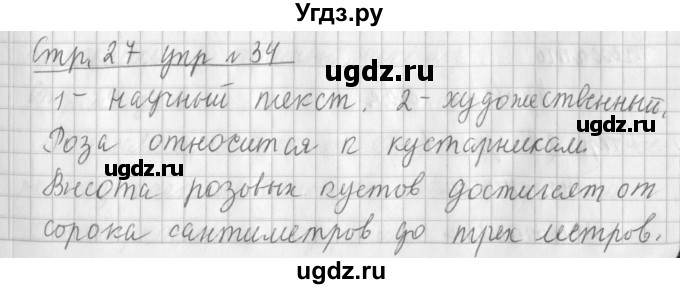 Угдз.ру
Стр. 27 упр № 34
ugdz.ru
1 - научный текст. 2 - художественный.
ugdz.ru
Роза относится к кустарникам.
ugdz.ru
ugdz.ru
Высота розовых кустов достигает от
сорока сантиметров до трех метров.
ugdz.ru
ugdz.ru